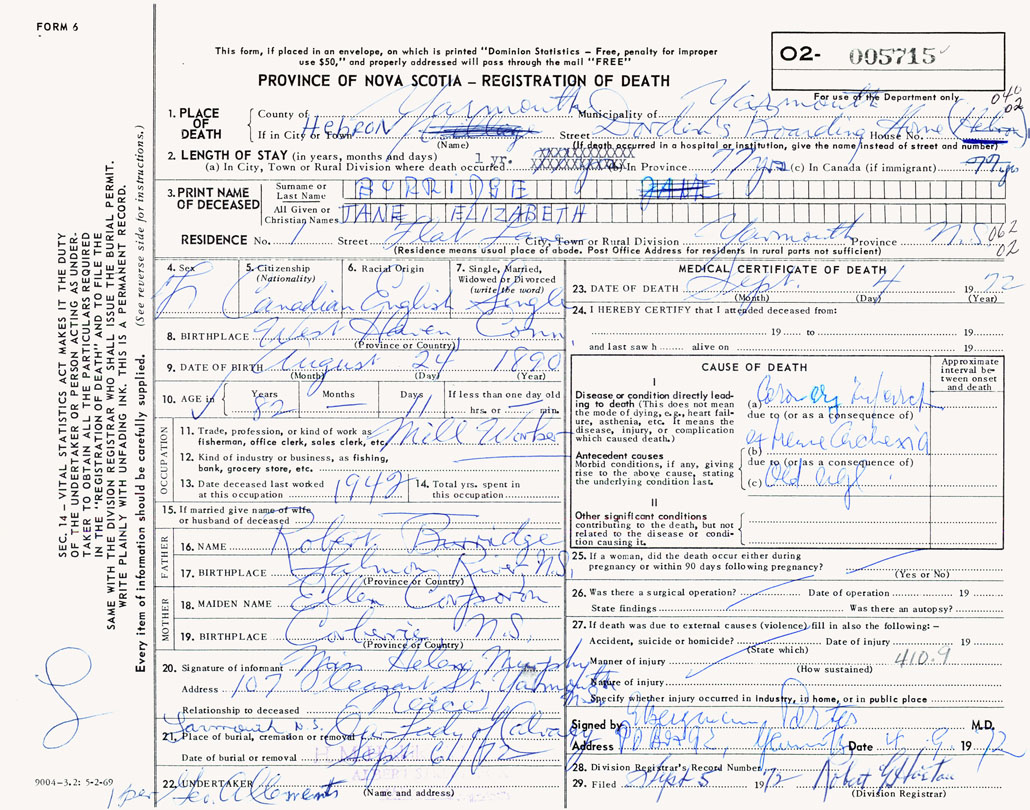 FORM 6
This form, if placed in an envelope, on which is printed "Dominion Statistics – Free, penalty for improper
use $50," and properly addressed will pass through the mail "FREE"
PROVINCE OF NOVA SCOTIA – REGISTRATION OF DEATH
O2- 005715
For use of the Department only
040
02
1. PLACE OF DEATH
County of Yarmouth Municipality of Yarmouth
If in City or Town Hebron Street Dordin's Boarding Home House No. (Hebron)
(Name) (If death occurred in a hospital or institution, give the name instead of street and number)
2. LENGTH OF STAY (in years, months and days)
(a) In City, Town or Rural Division where death occurred 1 yr. (b) In Province 77 yrs (c) In Canada (if immigrant) 77 yrs
3. PRINT NAME OF DECEASED
Surname or Last Name BURRIDGE
All Given or Christian Names JANE ELIZABETH
RESIDENCE No. 1 Street City, Town or Rural Division Yarmouth Province N.S. 062
02
(Residence means usual place of abode. Post Office Address for residents in rural parts not sufficient)
4. Sex F
5. Citizenship (Nationality) Canadian
6. Racial Origin English
7. Single, Married, Widowed or Divorced (write the word) Single
8. BIRTHPLACE West Haven Conn
(Province or Country)
9. DATE OF BIRTH August 24 1890
(Month) (Day) (Year)
10. AGE in Years 82 Months — Days 11 If less than one day old hrs. or min.
OCCUPATION
11. Trade, profession, or kind of work as fisherman, office clerk, sales clerk, etc. Mill Worker
12. Kind of industry or business, as fishing, bank, grocery store, etc.
13. Date deceased last worked at this occupation 1942
14. Total yrs. spent in this occupation
15. If married give name of wife or husband of deceased
FATHER
16. NAME Robert Burridge
17. BIRTHPLACE Salmon River N.S.
(Province or Country)
MOTHER
18. MAIDEN NAME Ellen Corporon
19. BIRTHPLACE N.S.
(Province or Country)
20. Signature of informant Miss Helene Murphy
Address 107 Pleasant St. Yarmouth
Relationship to deceased Niece
Yarmouth N.S. Our Lady of Calvary
21. Place of burial, cremation or removal
Date of burial or removal Sept 6/72
22. UNDERTAKER
(Name and address)
MEDICAL CERTIFICATE OF DEATH
23. DATE OF DEATH Sept. 4 1972
(Month) (Day) (Year)
24. I HEREBY CERTIFY that I attended deceased from:
19 to 19
and last saw h alive on 19
CAUSE OF DEATH
Approximate interval between onset and death
I
Disease or condition directly leading to death (This does not mean the mode of dying, e.g., heart failure, asthenia, etc. it means the disease, injury, or complication which caused death.)
(a) Coronary infarct
due to (or as a consequence of)
Antecedent causes
Morbid conditions, if any, giving rise to the above cause, stating the underlying condition last.
(b) Cachexia
due to (or as a consequence of)
(c) Old age
II
Other significant conditions contributing to the death, but not related to the disease or condition causing it.
25. If a woman, did the death occur either during pregnancy or within 90 days following pregnancy?
(Yes or No)
26. Was there a surgical operation? Date of operation 19
State findings Was there an autopsy?
27. If death was due to external causes (violence) fill in also the following: –
Accident, suicide or homicide? Date of injury 19
(State which)
Manner of injury 410.9
(How sustained)
Nature of injury
Specify whether injury occurred in industry, in home, or in public place
Signed by Porter M.D.
Address Date 4 . 9 1972
28. Division Registrar's Record Number
29. Filed Sept 5 1972 Robert G Horton
(Division Registrar)
SEC. 14 – VITAL STATISTICS ACT MAKES IT THE DUTY
OF THE UNDERTAKER OR PERSON ACTING AS UNDERTAKER TO OBTAIN ALL THE PARTICULARS REQUIRED
IN THE "REGISTRATION OF DEATH" AND TO FILE THE
SAME WITH THE DIVISION REGISTRAR WHO SHALL ISSUE THE BURIAL PERMIT.
WRITE PLAINLY WITH UNFADING INK. THIS IS A PERMANENT RECORD.
Every item of information should be carefully supplied. (See reverse side for instructions.)
9004-3.2: 5-2-69